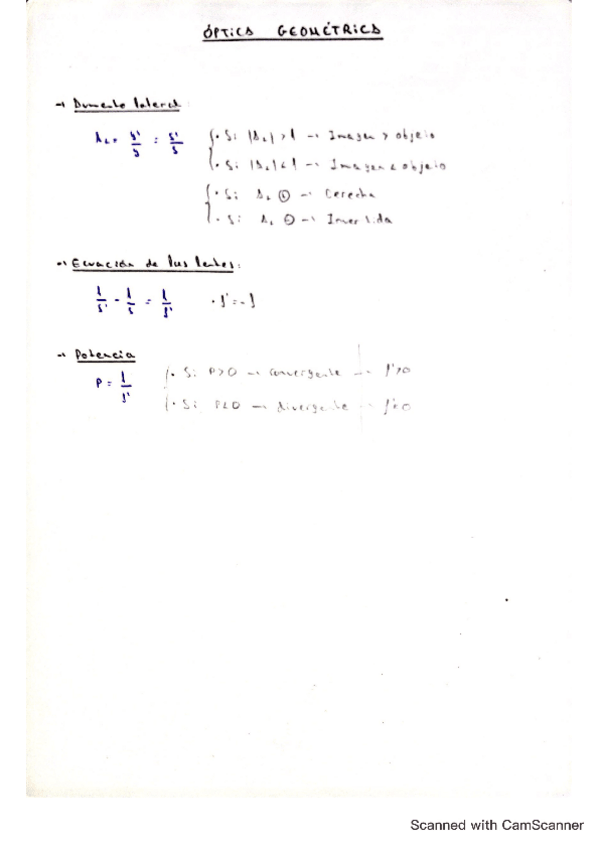 ÓPTICA GEOMÉTRICA
→ Aumento lateral:
A_L = y'/y = s'/s { • Si |A_L| > 1 → Imagen > objeto
• Si |A_L| < 1 → Imagen < objeto
• Si A_L ⊕ → Derecha
• Si A_L ⊖ → Invertida
→ Ecuación de las lentes:
1/s' - 1/s = 1/f' • f' = -f
→ Potencia
P = 1/f' { • Si P>0 → convergente → f'>0
• Si P<0 → divergente → f'<0
Scanned with CamScanner